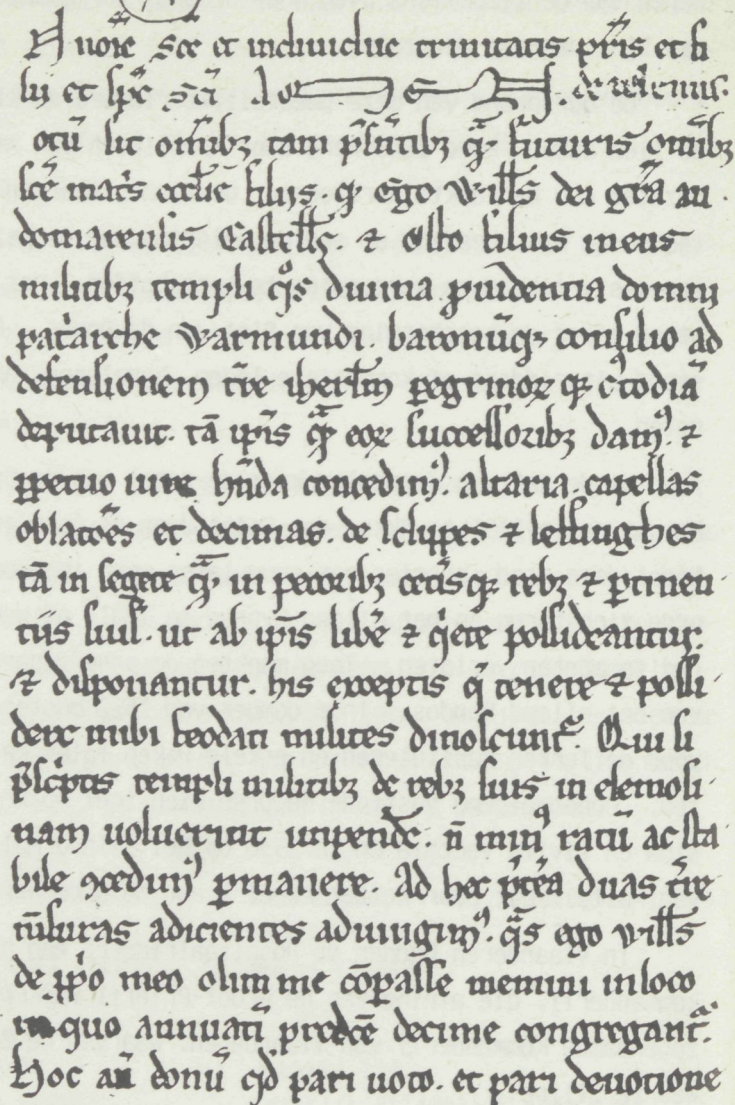 N noīe sc̄e et indiuidue trinitatis pat̄ris et fi
lii et sp̄c sc̄i de
otū sit om̄ibꝫ tam p̄sentibꝫ q̄ᵃ futuris om̄ibꝫ
sc̄e mat̄s eccl̄ie filiis. qꝫ ego Will̄s dei gr̄a au
domarensis Castell̄s. ⁊ Osto filius meus
militibꝫ templi q̊s diuina ꝓuidentia domni
pat̄arche Warmundi. baronūqꝫ consilio ad
defensionem tr̄e iherl̄m peregrinoꝝ qꝫ c᾿todiā
deputauit. tā ip̄is q̄ᵃ eoꝝ successoribꝫ dam᾿. ⁊
ꝑpetuo iure hn̄da concedim᾿. altaria. capellas
oblatōes et decimas. de sclippes ⁊ leffinghes
tā in segete q̄ᵃ. in pecoribꝫ cet̄isqꝫ rebꝫ ⁊ ꝑtinen
tiis suis. ut ab ip̄is libe᾿ ⁊ q̍ete possideantur.
⁊ disponantur. his exceptis q̄ tenere ⁊ possi
dere mihi feodati milites dinoscunt᾿. Qui si
p̄sc̍ptis templi militibꝫ de rebꝫ suis in elemosi
nam uoluerint inpend̄e. n̄ min᾿ ratū ac sta
bile ꝯcedim᾿ ꝑmanere. Ad hec p̄tēa duas tr̄e
m̄suras adicientes adiungim᾿. q̄ᵃs ego Will̄s
de ꝓp̍o meo olim me cōparasse memini in loco
in quo annuatī predc̄e decime congregant᾿.
Hoc aū donū qd̄ pari uoto. et pari deuotione